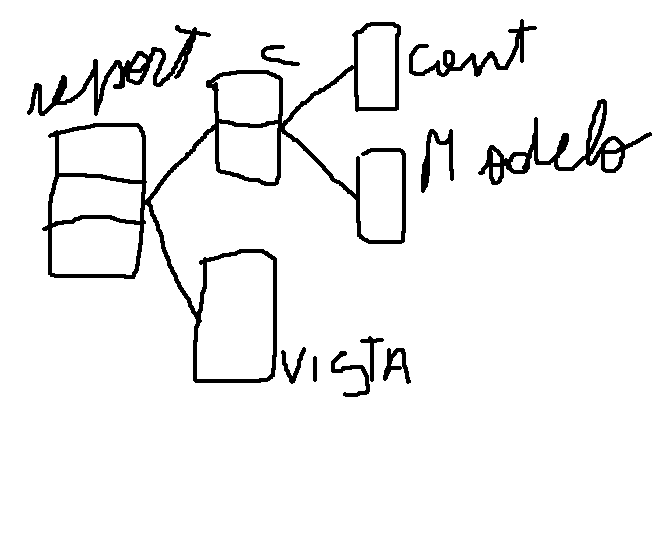 report
c
cont
Modelo
VISTA